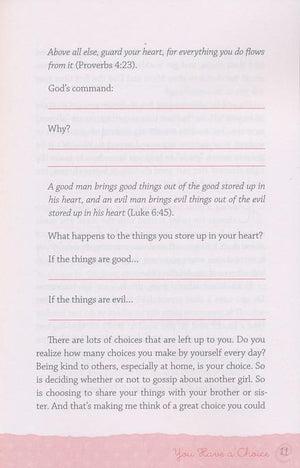 Above all else, guard your heart, for everything you do flows
from it (Proverbs 4:23).
God's command:
Why?
A good man brings good things out of the good stored up in
his heart, and an evil man brings evil things out of the evil
stored up in his heart (Luke 6:45).
What happens to the things you store up in your heart?
If the things are good...
If the things are evil...
There are lots of choices that are left up to you. Do you
realize how many choices you make by yourself every day?
Being kind to others, especially at home, is your choice. So
is deciding whether or not to gossip about another girl. So
is choosing to share your things with your brother or sis-
ter. And that's making me think of a great choice you could
You Have a Choice 11